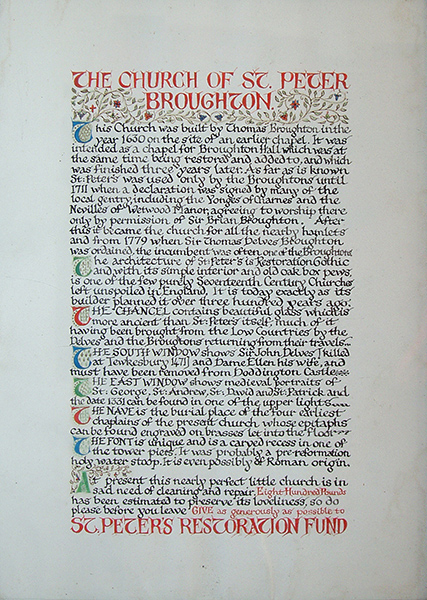 THE CHURCH OF ST. PETER
BROUGHTON.
This Church was built by Thomas Broughton in the
year 1630 on the site of an earlier chapel. It was
intended as a chapel for Broughton Hall which was at
the same time being restored and added to, and which
was finished three years later. As far as is known
St: Peter's was used only by the Broughtons until
1711 when a declaration was signed by many of the
local gentry, including the Yonges of Charnes and the
Nevilles of Wetwood Manor, agreeing to worship there
only by permission of Sir Brian Broughton. After
this it became the church for all the nearby hamlets
and from 1779 when Sir Thomas Delves Broughton
was ordained, the incumbent was often one of the Broughtons
The architecture of St: Peter's is Restoration Gothic
and with its simple interior and old oak box pews,
is one of the few purely Seventeenth Century Churches
left unspoiled in England. It is today exactly as its
builder planned it over three hundred years ago.
THE CHANCEL contains beautiful glass which is
more ancient than St: Peter's itself; much of it
having been brought from the Low Countries by the
Delves and the Broughtons returning from their travels.
THE SOUTH WINDOW shows Sir John Delves [killed
at Tewkesbury 1471] and Dame Ellen his wife, and
must have been removed from Doddington Castle.
THE EAST WINDOW shows medieval portraits of
St: George, St: Andrew, St: David and St: Patrick and
the date 1331 can be found in one of the upper lights.
THE NAVE is the burial place of the four earliest
chaplains of the present church whose epitaphs
can be found engraved on brasses let into the floor
THE FONT is unique and is a carved recess in one of
the tower piers. It was probably a pre-reformation
holy water stoop. It is even possibly of Roman origin.
At present this nearly perfect little church is in
sad need of cleaning and repair. Eight Hundred Pounds
has been estimated to preserve its loveliness, so do
please before you leave GIVE as generously as possible to
ST. PETER'S RESTORATION FUND